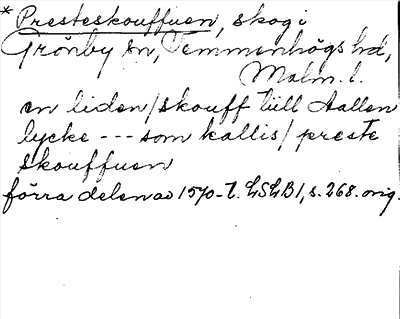 * Presteskouffuen, skog i
Grönby sn, Vemmenhögs hd,
Malm. l.
en liden/skouff till Aallon
lycke --- som kallis/preste
skouffuen
förra delen av 1570-t. LSLB1, s. 268. orig.